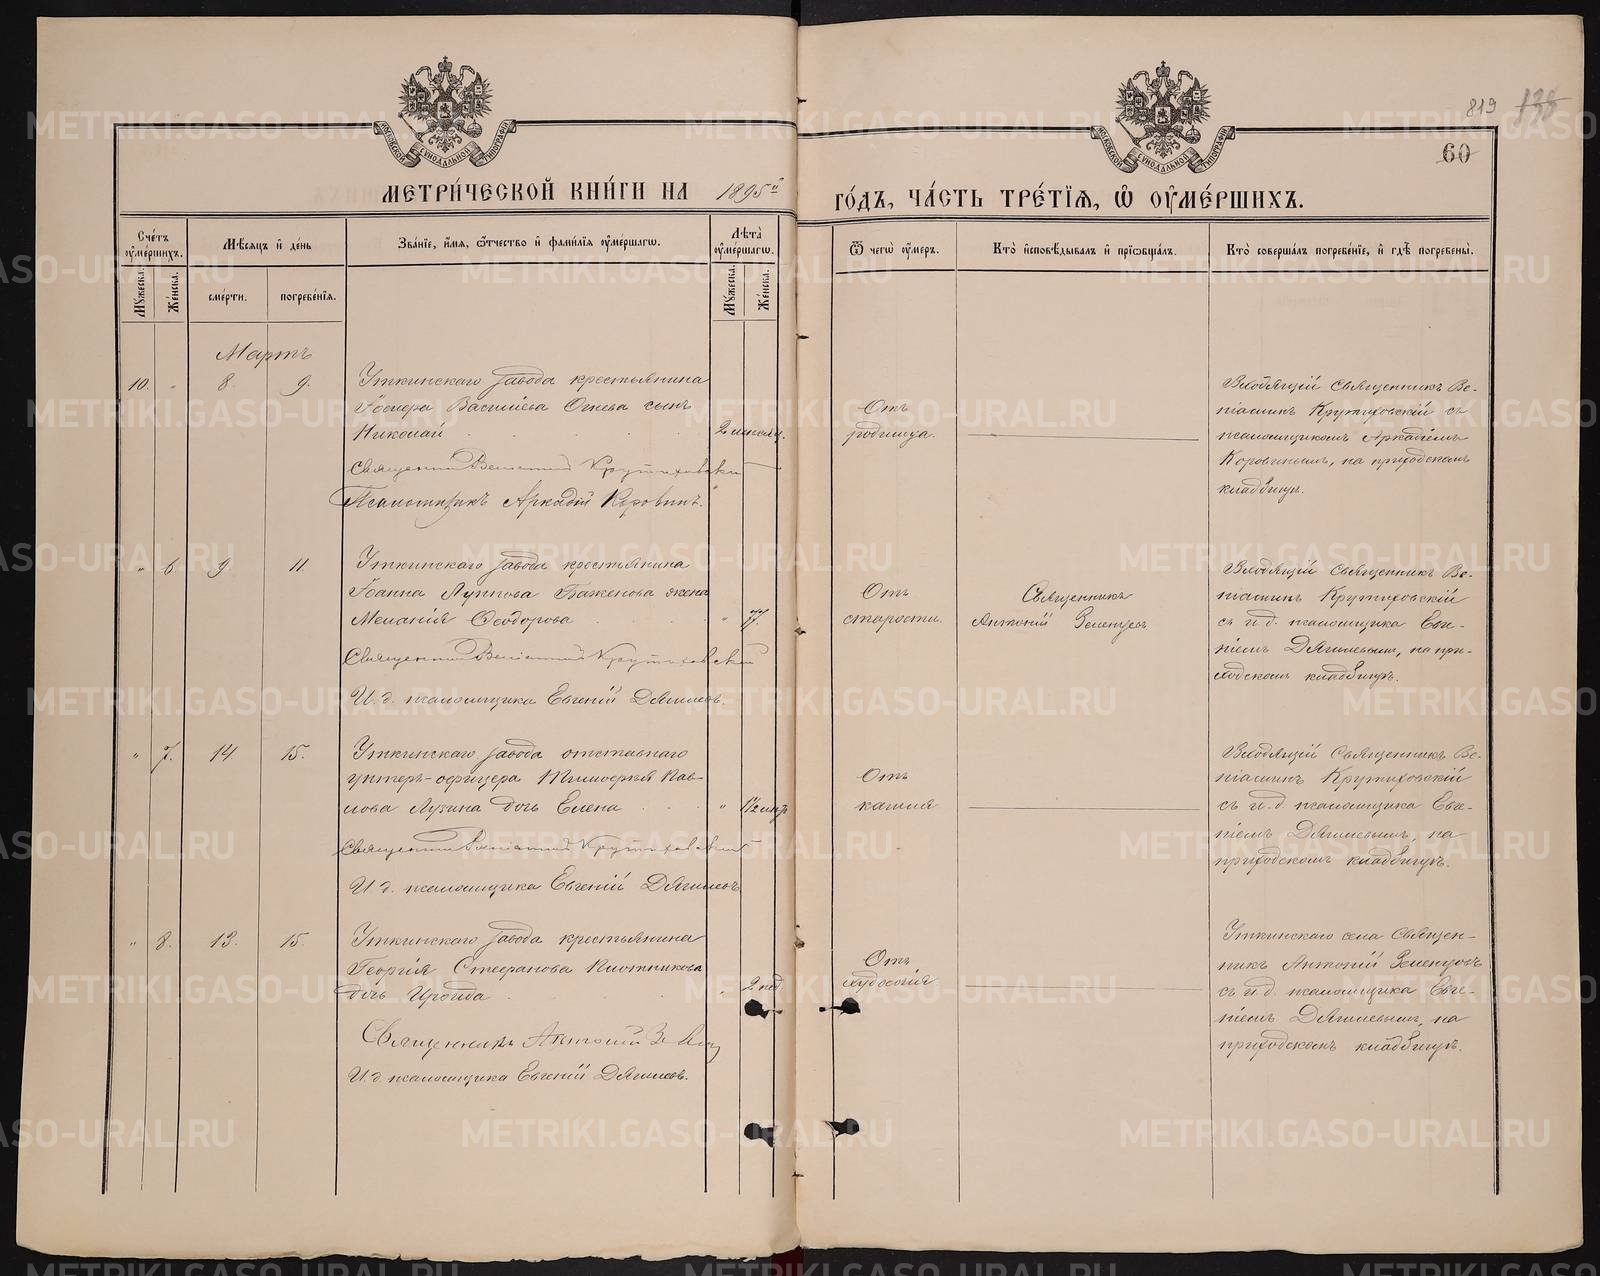 819
60
МОСКОВСКОЙ СѴНОДАЛЬНОЙ ТИПОГРАФІИ
МОСКОВСКОЙ СѴНОДАЛЬНОЙ ТИПОГРАФІИ
МЕТРИ́ЧЕСКОЙ КНИ́ГИ НА 1895й ГО́ДЪ, ЧА́СТЬ ТРЕ́ТІѦ, Ѡ҆ ОУ҆МЕ́РШИХЪ.
Сче́тъ оу҆ме́ршихъ.
Мꙋжеска.
Же́нска.
Мѣ́сѧцъ и҆ де́нь
сме́рти.
погребе́нїѧ.
Зва́нїе, и҆́мѧ, ѻ҆́тчество и҆ фами́лїѧ оу҆ме́ршагѡ.
Лѣ́та оу҆ме́ршагѡ.
Мꙋжеска.
Же́нска.
Ѿ чегѡ̀ оу҆́меръ.
Кто̀ и҆сповѣ́дывалъ и҆ прїѡбща́лъ.
Кто̀ соверша́лъ погребе́нїе, и҆ гдѣ̀ погребены̀.
Мартъ
10. " 8. 9.
Уткинскаго завода крестьянина
Іосифа Васильева Огнева сынъ
Николай
2 месяц.
Священникъ Веніаминъ Крутиховскій
Псаломщикъ Аркадій Коровинъ.
Отъ
родимца.
Входящій Священникъ Ве-
ніаминъ Крутиховскій съ
псаломщикомъ Аркадіемъ
Коровинымъ, на приходскомъ
кладбищѣ.
" 6. 9 11.
Уткинскаго завода крестьянина
Іоанна Луппова Баженова жена
Меланія Ѳеодорова
" 77.
Священникъ Веніаминъ Крутиховскій
И. д. псаломщика Евгеній Дягилевъ.
Отъ
старости.
Священникъ
Антоній Зеленцовъ
Входящій Священникъ Ве-
ніаминъ Крутиховскій
съ и. д. псаломщика Евге-
ніемъ Дягилевымъ, на при-
ходскомъ кладбищѣ.
" 7. 14. 15.
Уткинскаго завода отставнаго
унтеръ-офицера Тимоѳея Пав-
лова Лузина дочь Елена
"
Священникъ Веніаминъ Крутиховскій
И. д. псаломщика Евгеній Дягилевъ
Отъ
кашля
Входящій Священникъ Ве-
ніаминъ Крутиховскій
съ и. д. псаломщика Евге-
ніемъ Дягилевымъ, на
приходскомъ кладбищѣ.
" 8. 13. 15.
Уткинскаго завода крестьянина
Георгія Стефанова Плотникова
дочь Ироида
" 2 нед.
Священникъ Антоній
И. д. псаломщика Евгеній Дягилевъ.
Отъ
худосочія
Уткинскаго села Священ-
никъ Антоній Зеленцовъ
съ и. д. псаломщика Евге-
ніемъ Дягилевымъ, на
приходскомъ кладбищѣ.
METRIKI.GASO-URAL.RU